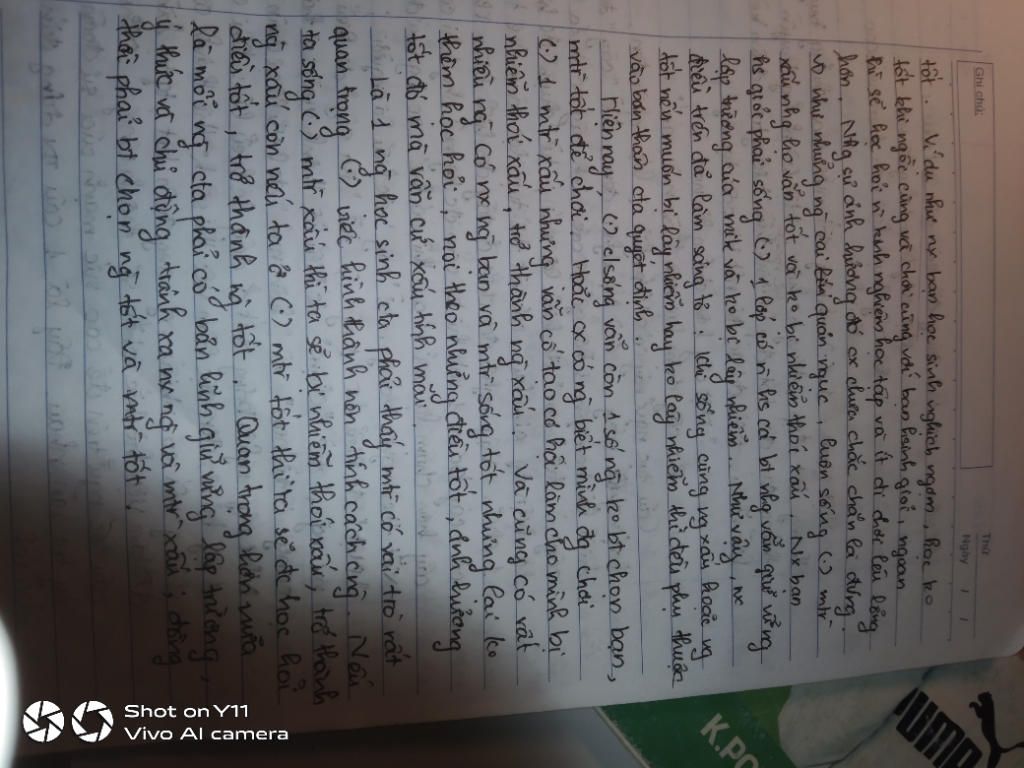 Ghi chú:
Thứ
Ngày / /
tốt. Ví dụ như nx bạn học sinh nghịch ngợm, học ko
tốt khi ngồi cùng và chơi cùng với bạn học giỏi, ngoan
thì sẽ học hỏi vì kinh nghiệm học tập và ít đi chơi lêu lổng
hơn. Nhg sự ảnh hưởng đó cx chưa chắc chắn là đúng.
vd như những ng cai quản ngục, luôn sống (.) mtr
xấu nhg họ vẫn tốt và ko bị nhiễm thói xấu, Nx bạn
hs giỏi phải sống (.) 1 lớp có n hs cá bt nhg vẫn giữ vững
lập trường của mik và ko bị lây nhiễm. Như vậy, nx
điều trên đã làm sáng tỏ: khi sống cùng ng xấu hoặc ng
tốt nếu muốn bị lây nhiễm hay ko lây nhiễm thì đều phụ thuộc
vào bản thân cta quyết định.
Hiện nay, (.) c/sống vẫn còn 1 số ng ko bt chọn bạn,
mtr tốt để chơi. Hoặc cx có ng biết mình đg chơi
(.) 1 mtr xấu nhưng vẫn cố tạo cơ hội làm cho mình bị
nhiễm thói xấu, trở thành ng xấu. Và cũng có rất
nhiều ng có nx ng bạn và mtr sống tốt nhưng lại ko
thèm học hỏi, noi theo những điều tốt, ảnh hưởng
tốt đó mà vẫn cứ xấu tính mãi.
Là 1 ng học sinh cta phải thấy mtr có vai trò rất
quan trọng (.) việc hình thành nên tính cách con ng. Nếu
ta sống (.) mtr xấu thì ta sẽ bị nhiễm thói xấu, trở thành
ng xấu còn nếu ta ở (.) mtr tốt thì ta sẽ đc học hỏi
điều tốt, trở thành ng tốt. Quan trọng hơn nữa
là mỗi ng cta phải có bản lĩnh giữ vững lập trường,
ý thức và chủ động tránh xa nx ng và mtr xấu; đồng
thời phải bt chọn ng tốt và mtr tốt.
K.PO
PUMA
Shot on Y11
Vivo AI camera